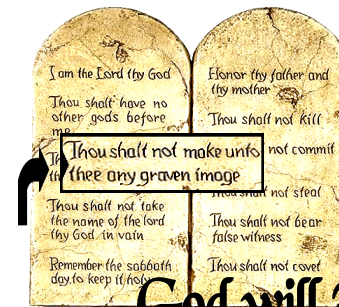 I am the Lord thy God
Thou shalt have no
other gods before
me
Th
Thou shalt not make unto
thee any graven image
Thou shalt not take
the name of the lord
thy God in vain
Remember the sabbath
day, to keep it holy
Honor thy father and
thy mother
Thou shalt not kill
not commit
Thou shalt not steal
Thou shalt not bear
false witness
Thou shalt not covet
God will